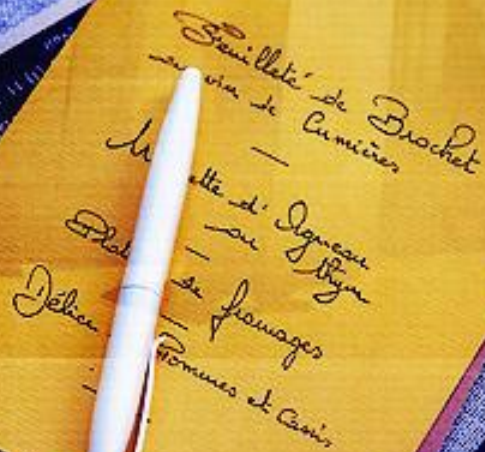 Feuilleté de Brochet
au vin de Cumières
—
tte d'Agneau
au thym
—
Plat de fromages
—
Délice Pommes et Cassis